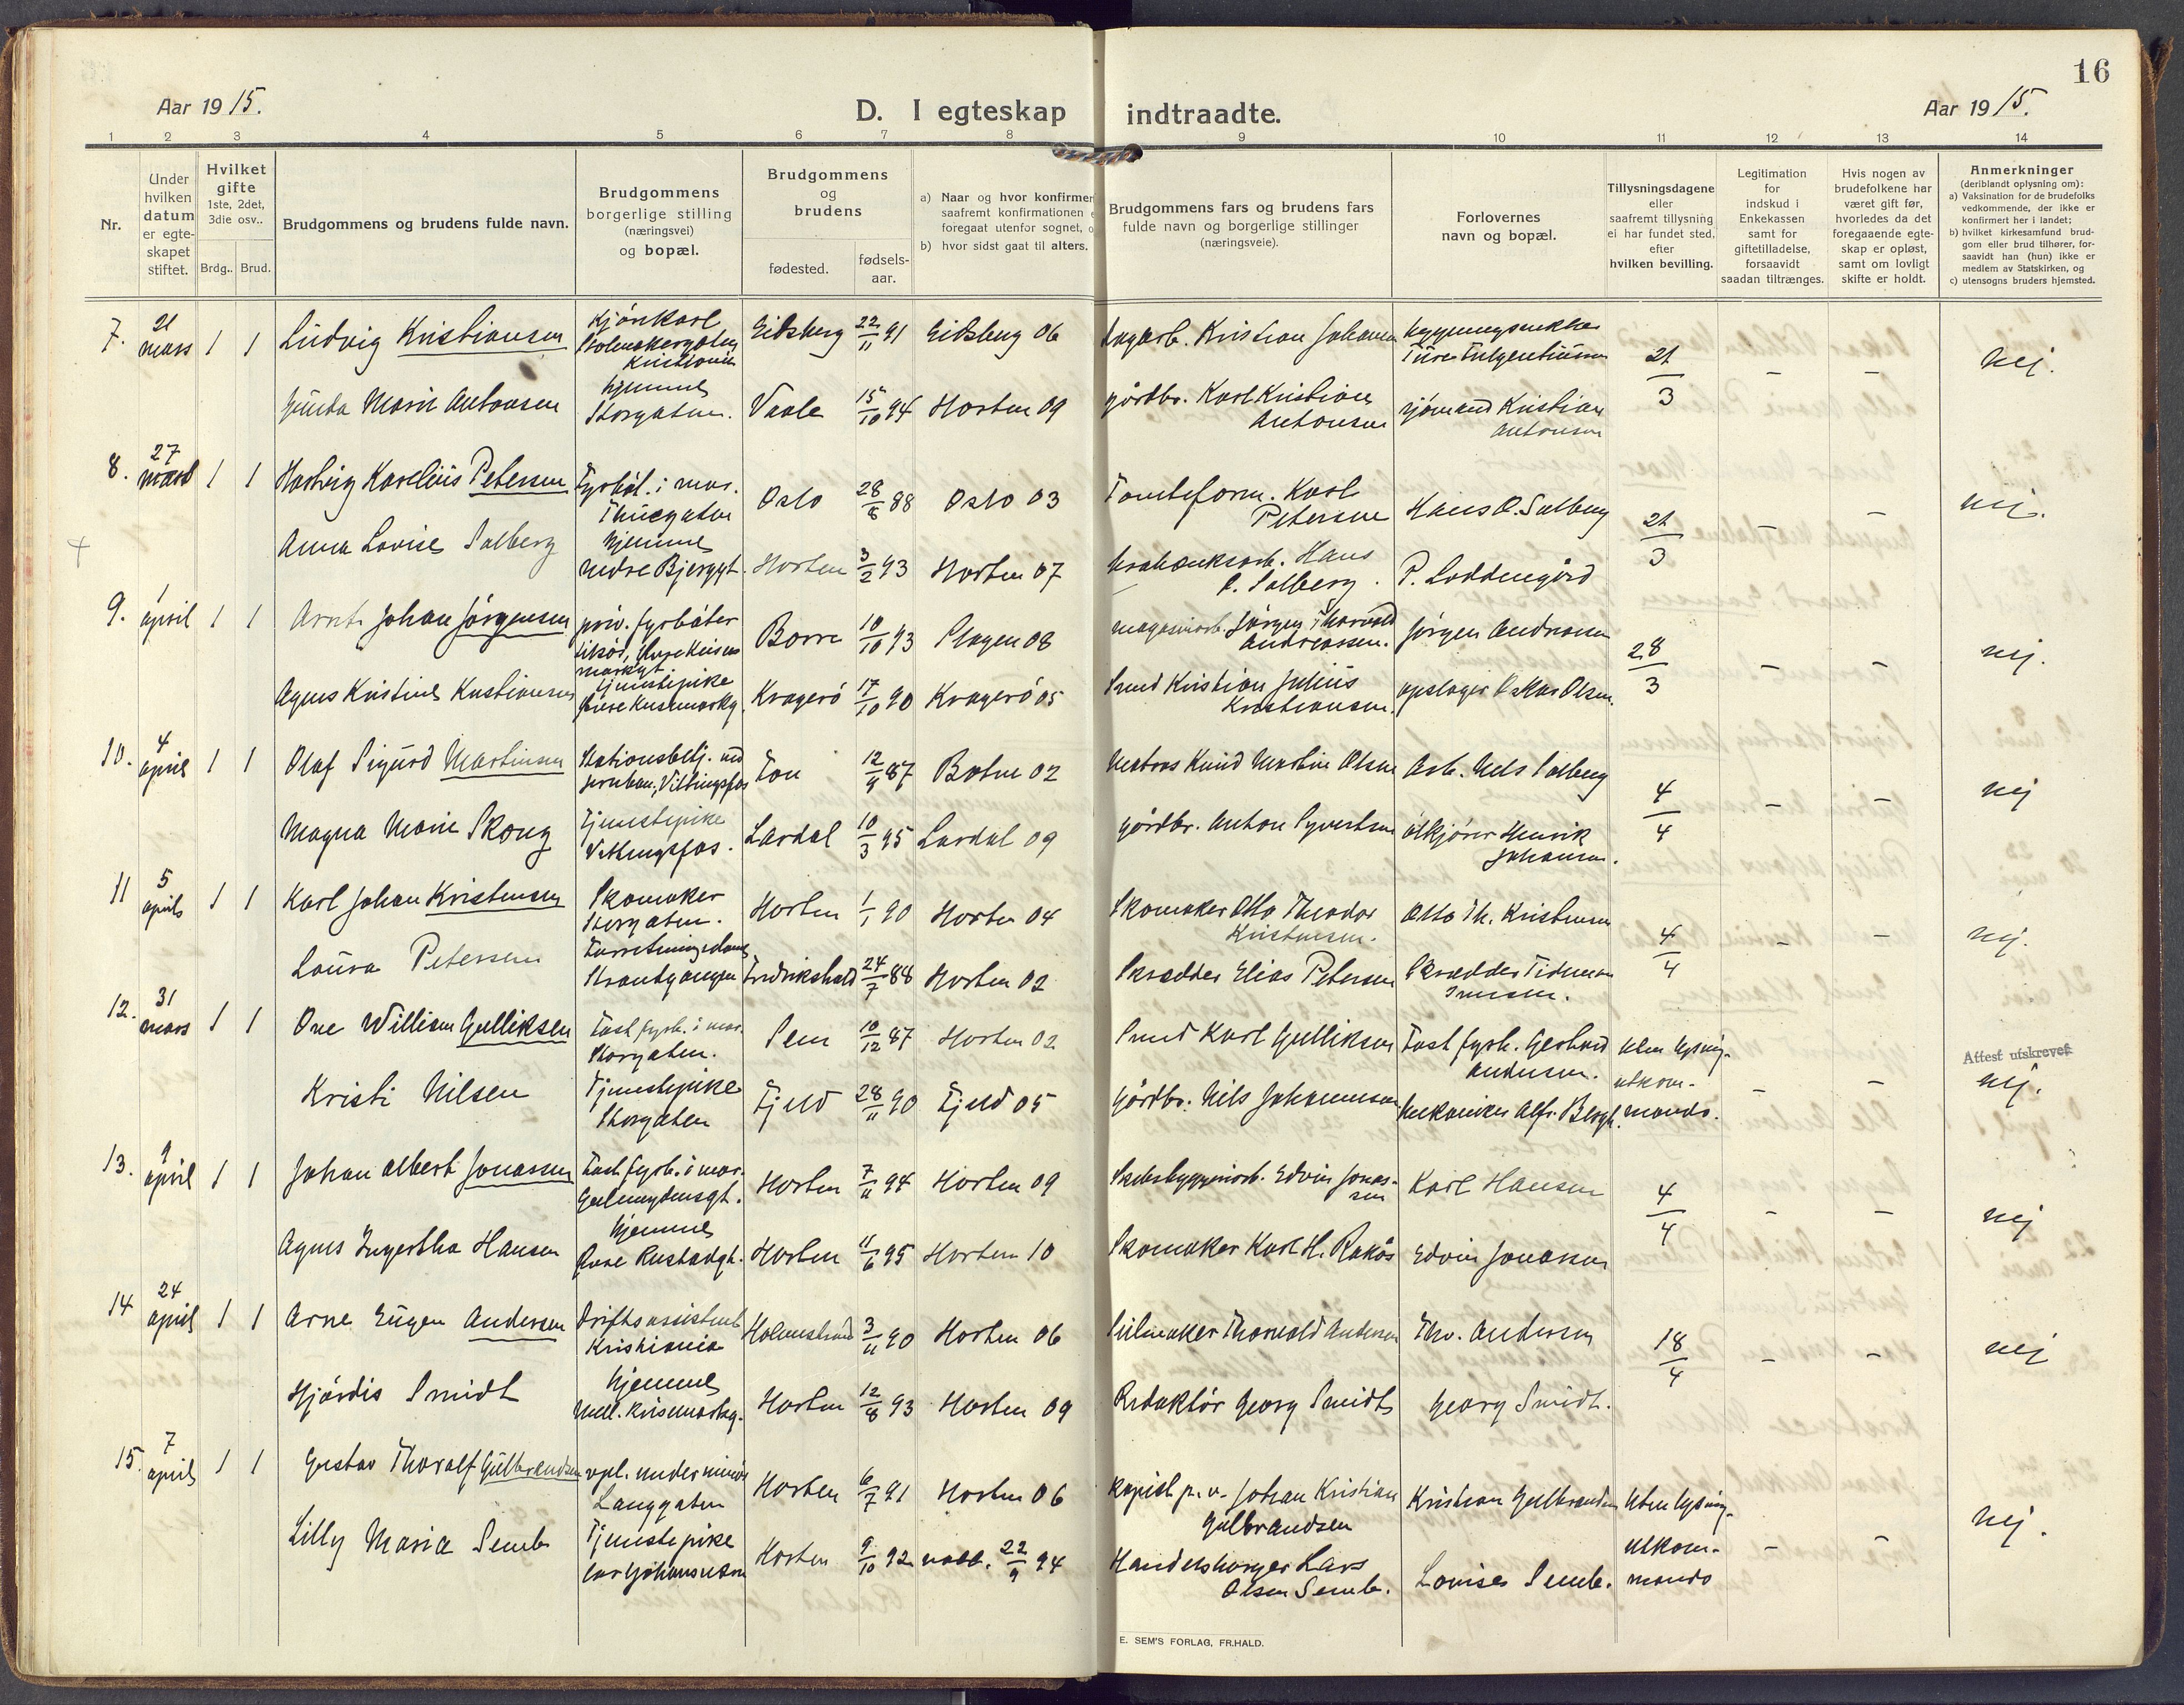 16
Aar 1915.
D. I egteskap indtraadte.
Aar 1915.
1 2 3 4 5 6 7 8 9 10 11 12 13 14
Nr.
Under hvilken datum er egte-skapet stiftet.
Hvilket gifte 1ste, 2det, 3die osv..
Brdg.. Brud.
Brudgommens og brudens fulde navn.
Brudgommens borgerlige stilling (næringsvei) og bopæl.
Brudgommens og brudens
fødested.
fødsels-aar.
a) Naar og hvor konfirmer
saafremt konfirmationen
foregaat utenfor sognet,
b) hvor sidst gaat til alters.
Brudgommens fars og brudens fars
fulde navn og borgerlige stillinger
(næringsveie).
Forlovernes
navn og bopæl.
Tillysningsdagene
eller
saafremt tillysning
ei har fundet sted,
efter
hvilken bevilling.
Legitimation
for
indskud i
Enkekassen
samt for
giftetilladelse,
forsaavidt
saadan tiltrænges.
Hvis nogen av
brudefolkene har
været gift før,
hvorledes da det
foregaaende egte-
skap er opløst,
samt om lovligt
skifte er holdt.
Anmerkninger
(deriblandt oplysning om):
a) Vaksination for de brudefolks
vedkommende, der ikke er
konfirmert her i landet;
b) hvilket kirkesamfund brud-
gom eller brud tilhører, for-
saavidt han (hun) ikke er
medlem av Statskirken, og
c) utensogns bruders hjemsted.
7. 21 mars 1 1 Ludvig Kristiansen Kjørekarl Kristiania Eidsberg 22/11 91 Eidsberg 06 Kristian Johansen 21/3 - - nej.
Marie Antonsen hjemme Storgaten. Vaale 15/10 94 Horten 09 gårdbr. Karl Kristian Antonsen sjømand Kristian Antonsen
8. 27 mars 1 1 Hartvig Karelius Petersen Fyrbøt. i mar. Thuegaten Oslo 28/8 88 Oslo 03 Karl Petersen Hans O. Solberg 21/3 - - nej.
Anna Lovise Solberg hjemme Nedre Bjerggt. Horten 3/2 93 Horten 07 Hans O. Solberg. P. Loddengård
9. april 1 1 Arnt Johan Jørgensen priv. fyrbøter Borre 10/10 93 Slagen 08 Jørgen Thorvald Andreassen. Jørgen Andreassen 28/3 - - nej.
Agnes Kristine Kristiansen tjenestepike Kragerö 17/10 90 Kragerö 05 Smed Kristian Julius Kristiansen. Oskar Olsen.
10. 4 april 1 1 Olaf Sigurd Martinsen Stationsbetj. ved jernban., Vittingsfos Fon 12/9 87 Botne 02 Matros Knud Martin Olsen Arb. Nels Solberg 4/4 - - nej
Magna Marie Skoug Tjenestepike Vittingsfos. Lardal 10/3 95 Lardal 09 gårdbr. Anton Syvertsen ølkjører Henrik Johansen.
11 5 april 1 1 Karl Johan Kristensen Skomaker Storgaten. Horten 1/1 90 Horten 04 Skomaker Otto Theodor Kristensen. Otto Th. Kristensen 4/4 - - nej.
Laura Petersen Forretningsdame Strandgangen Fredrikshald 24/7 88 Horten 02 Skrædder Elias Petersen Skrædder Tidemann Iversen.
12. 31 mars 1 1 Ove William Gulliksen Fast fyrb. i mar. Storgaten. Sem 10/12 87 Horten 02 Smed Karl Gulliksen Fast fyrb. Gerhard Andersen. Uten lysning. utkom- mando. - - nej.
Attest utskrevet
Kristi Nilsen Tjenestepike Storgaten Fjeld 28/11 90 Fjeld 05 Gårdbr. Nils Johannesen Mekaniker Alf. Bergh.
13. 9 april 1 1 Johan Albert Jonassen Fast fyrb. i mar. Horten 7/11 94 Horten 09 Edvin Jonas- sen Karl Hansen 4/4 - - nej
Agnes Ingertha Hansen hjemme Øvre Rustadgt. Horten 11/6 95 Horten 10 Skomaker Karl H. Rakås Edvin Jonassen
14 24 april 1 1 Arne Eugen Andersen Driftsassistent Kristiania Holmestrand 3/11 90 Horten 06 Seilmaker Thorvald Andersen Thv. Andersen 18/4 - - nej
Hjørdis Smidt hjemme Mell. Keisemarksg. Horten 12/8 93 Horten 09 Redaktör Georg Smidt Georg Smidt.
15. 7 april 1 1 Gustav Thoralf Gulbrandsen vpl. underminör Langgaten Horten 6/7 91 Horten 06 Kopist p.v. Johan Kristian Gulbrandsen Kristian Gulbrandsen Uten lysning. utkom- mando - - nej.
Lilly Maria Semb Tjenestepike Horten 9/10 92 22/9 94 Handelsborger Lars Olsen Semb. Lovise Semb.
E. SEM'S FORLAG, FR.HALD.